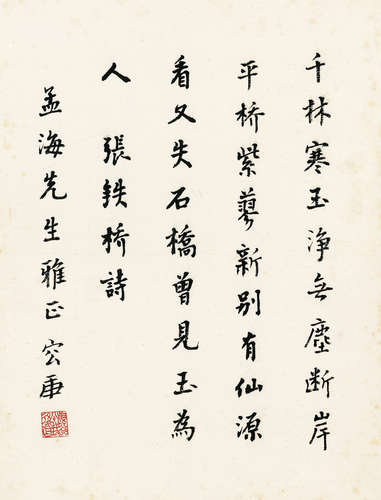 千林寒玉淨無塵断岸
平桥紫蓼新别有仙源
看又失石橋曾見玉為
人 張铁桥詩
孟海先生雅正 宏